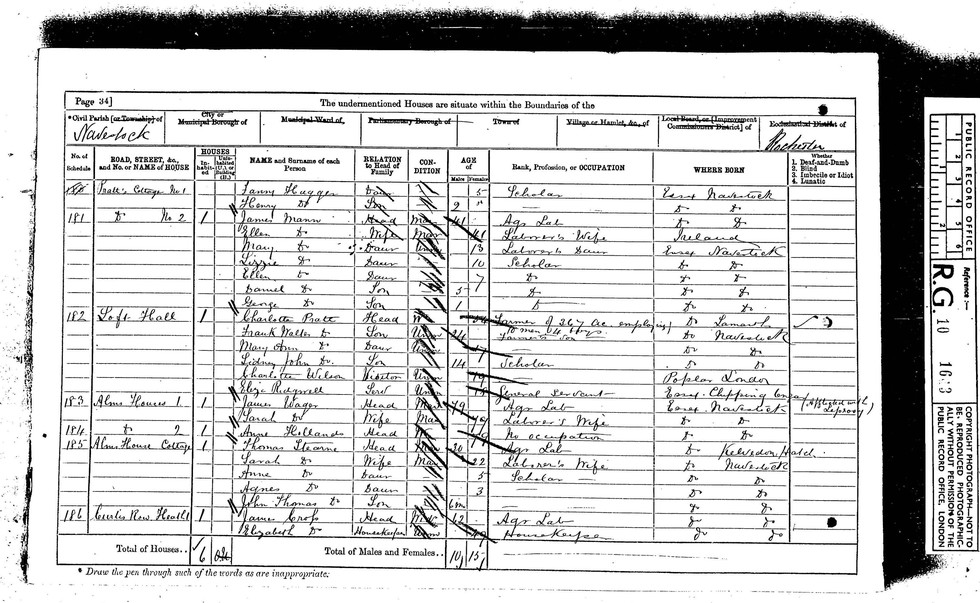 Page 34]
The undermentioned Houses are situate within the Boundaries of the
*Civil Parish [or Township] of
City or Municipal Borough of
Municipal Ward of
Parliamentary Borough of
Town of
Village or Hamlet, &c., of
Local Board, or [Improvement Commissioners District] of
Ecclesiastical District of
Navestock
Rochester
No. of Schedule
ROAD, STREET, &c., and No. or NAME of HOUSE
HOUSES
Inhabited
Uninhabited (U.), or Building (B.)
NAME and Surname of each Person
RELATION to Head of Family
CONDITION
AGE of
Males
Females
Rank, Profession, or OCCUPATION
WHERE BORN
Whether
1. Deaf-and-Dumb
2. Blind
3. Imbecile or Idiot
4. Lunatic
Pratt's Cottage No 1 Fanny Hugger Daur 5 Scholar Essex Navestock
Henry Do Son 2 Do Do
181 Do No 2 1 James Mann Head Mar 41 Ags Lab Do Do
Ellen Do Wife Mar 41 Laborer's Wife Ireland
Mary Do Daur Unm 13 Laborer's Daur Essex Navestock
Lizzie Do Daur 10 Scholar Do Do
Ellen Do Daur 7 Do Do Do
Daniel Do Son 5 Do Do Do
George Do Son 1 Do Do
182 Loft Hall 1 Charlotte Pratt Head W Farmer of 367 ac employing 10 men & 4 boys Do Lamarsh
Frank Walter Do Son Unm 24 Farmer's Son Do Navestock
Mary Ann Do Daur Unm 17 Do Do
Sidney John Do Son 14 Scholar Do Do
Charlotte Wilson Visitor Unm 19 Poplar London
Eliza Ridgwell Serv Unm General Servant Essex Chipping
183 Alms Houses 1 1 James Wager Head Mar 79 Ags Lab Essex Navestock (Afflicted with Leprosy)
Sarah Do Wife Mar 79 Laborer's Wife Do Do
184 Do 2 1 Anne Hollands Head No occupation Do Do
185 Alms House Cottage 1 Thomas Stearne Head Mar 30 Ags Lab Do Kelvedon Hatch
Sarah Do Wife Mar 22 Laborer's Wife Do Navestock
Anne Do Daur 5 Scholar Do Do
Agnes Do Daur 3 Do Do
John Thomas Do Son 6m Do Do
186 Curtis Row Heath 1 James Cross Head Ags Lab Do Do
Elizabeth Do Housekeeper Unm Housekeeper Do Do
Total of Houses.. 6
Total of Males and Females.. 10 15
* Draw the pen through such of the words as are inappropriate.
PUBLIC RECORD OFFICE
1 2 3 4 5 6
Reference:—
R.G. 10
COPYRIGHT PHOTOGRAPH—NOT TO BE REPRODUCED PHOTOGRAPHICALLY WITHOUT PERMISSION OF THE PUBLIC RECORD OFFICE, LONDON